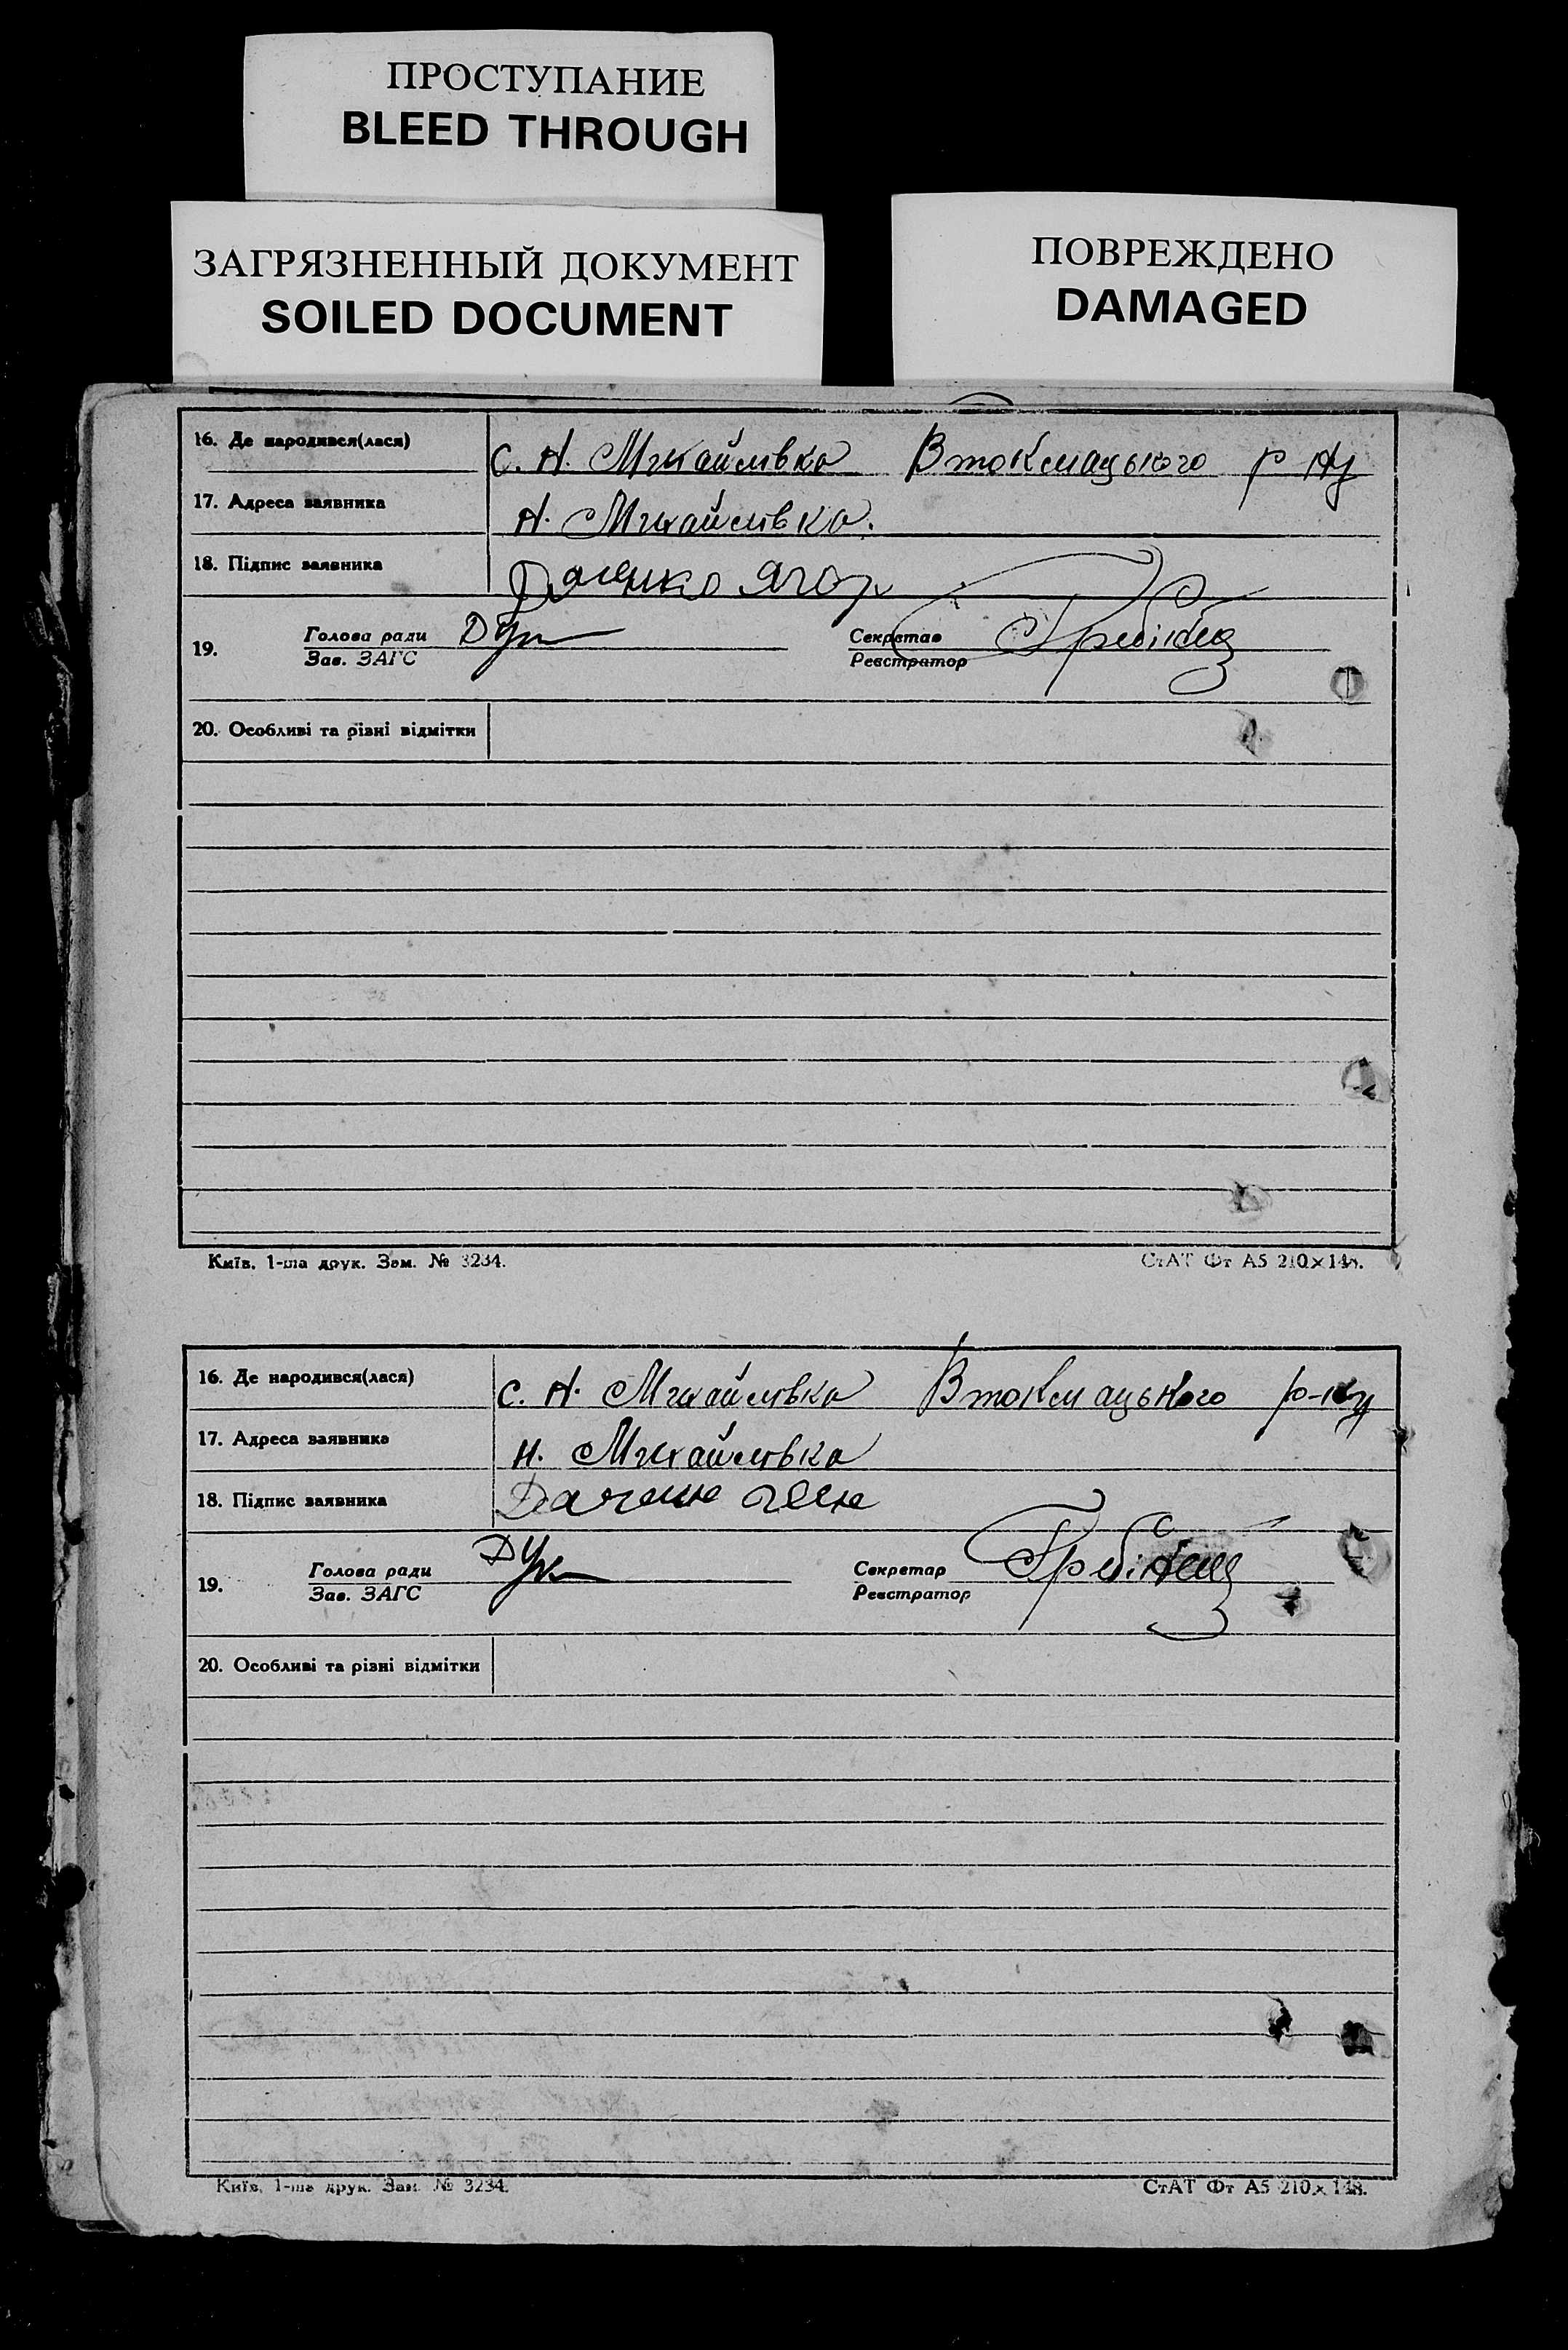 ПРОСТУПАНИЕ
BLEED THROUGH
ЗАГРЯЗНЕННЫЙ ДОКУМЕНТ
SOILED DOCUMENT
ПОВРЕЖДЕНО
DAMAGED
16. Де народився(лася) с. Н. Михайлівка Втокмацького р-ну
17. Адреса заявника Н. Михайлівка.
18. Підпис заявника
19. Голова ради Секретар
Зав. ЗАГС Реєстратор
20. Особливі та різні відмітки
Київ, 1-ша друк. Зам. № 3234. СтАТ Фт А5 210×148.
16. Де народився(лася) с. Н. Михайлівка Втокмацького р-ну
17. Адреса заявника Н. Михайлівка
18. Підпис заявника
19. Голова ради Секретар
Зав. ЗАГС Реєстратор
20. Особливі та різні відмітки
Київ, 1-ша друк. Зам. № 3234. СтАТ Фт А5 210×148.